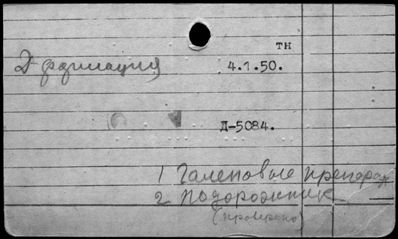 тн
Д-фармация 4.1.50.
Д-5084.
1 Галеновые препарат
2 Подорожник —
(проверено)